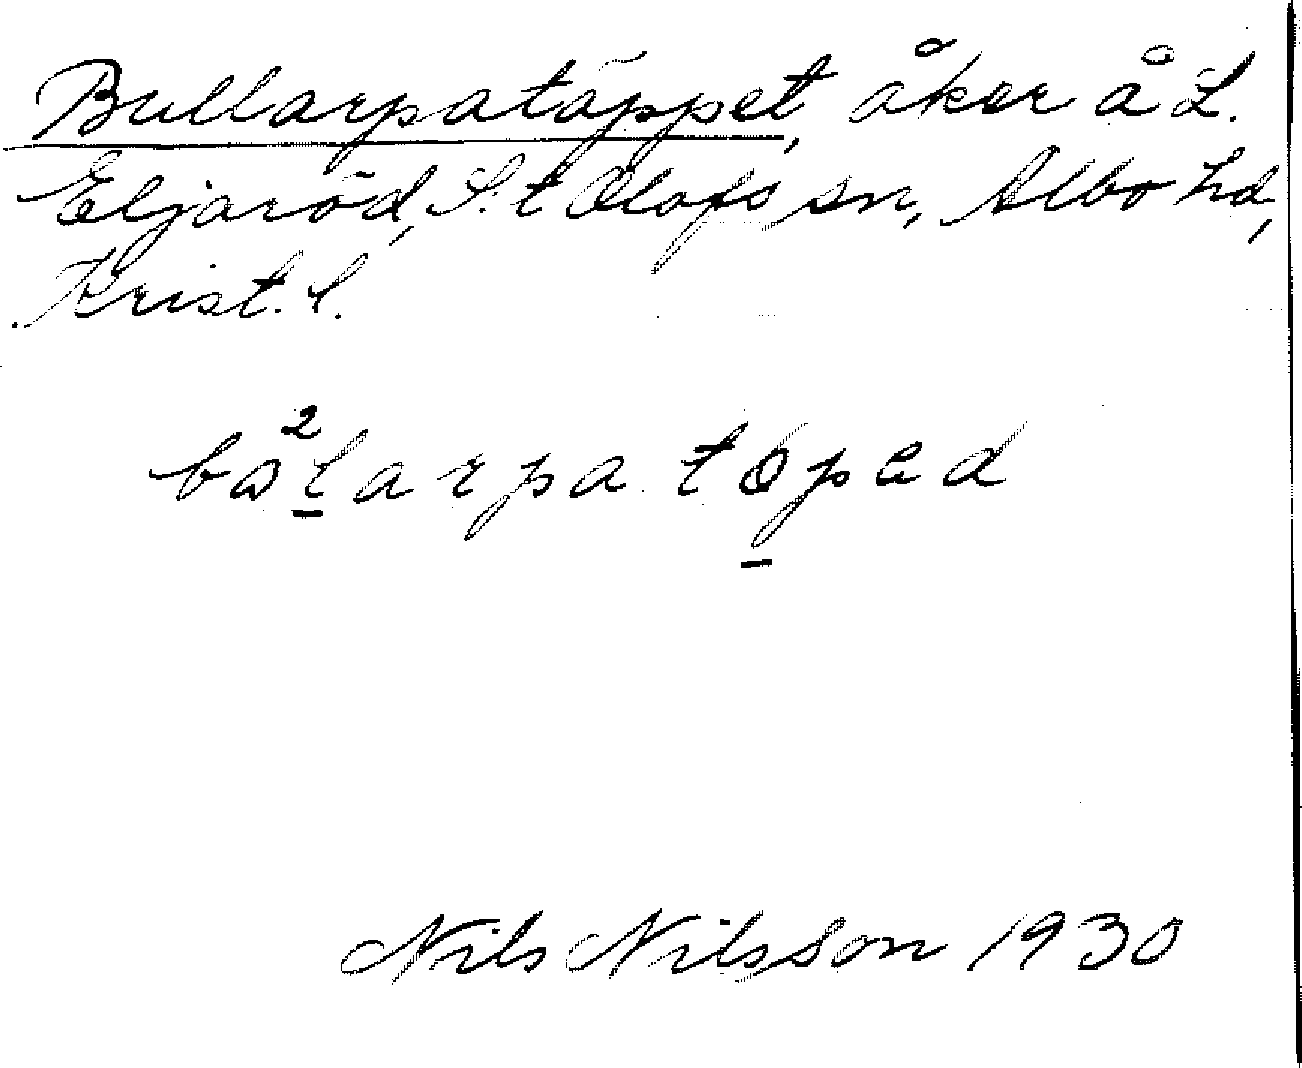 Bullarpatäppet, åker å L.
Eljaröd, S:t Olofs sn, Albo hd,
Krist. l.
bω²larpa töped
Nils Nilsson 1930